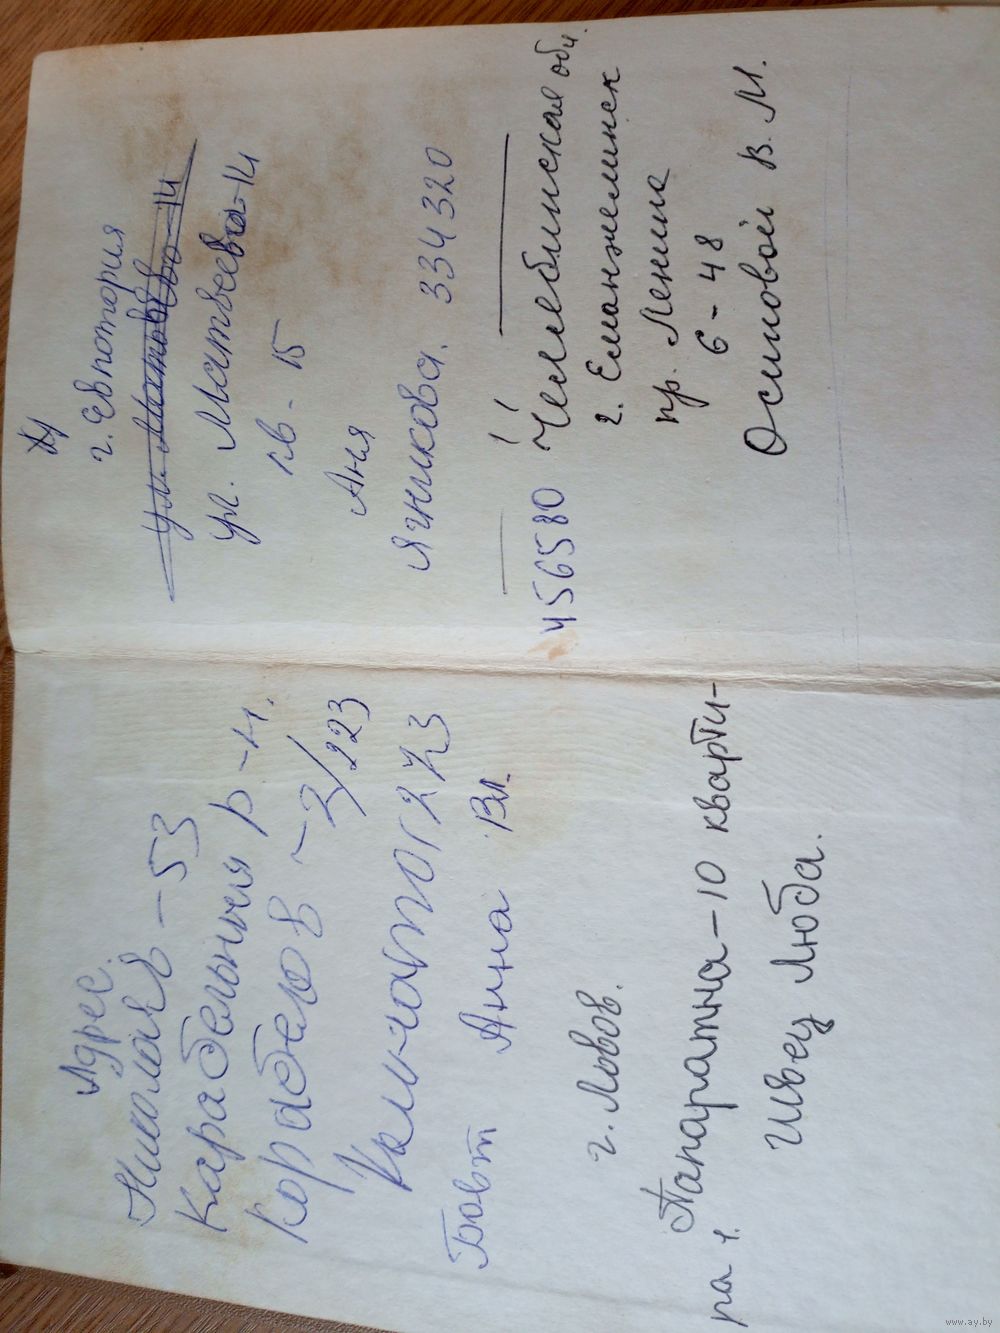 Адрес.
Николаев - 53
Карабельный р-н.
Корабелов - 3/223
273
Бовт Анна Вл.
г. Львов.
Папаратна-10 кварти-
ра 1.
Швец Люба.
г. Евпотория
ул. Матвеева-14
ул. Матвеева-14
кв. 15
Аня
Ячникова. 334320
456580 Челябинская обл.
г. Еманжелинск
пр. Ленина
6-48
Осиповой В. М.
www.ay.by